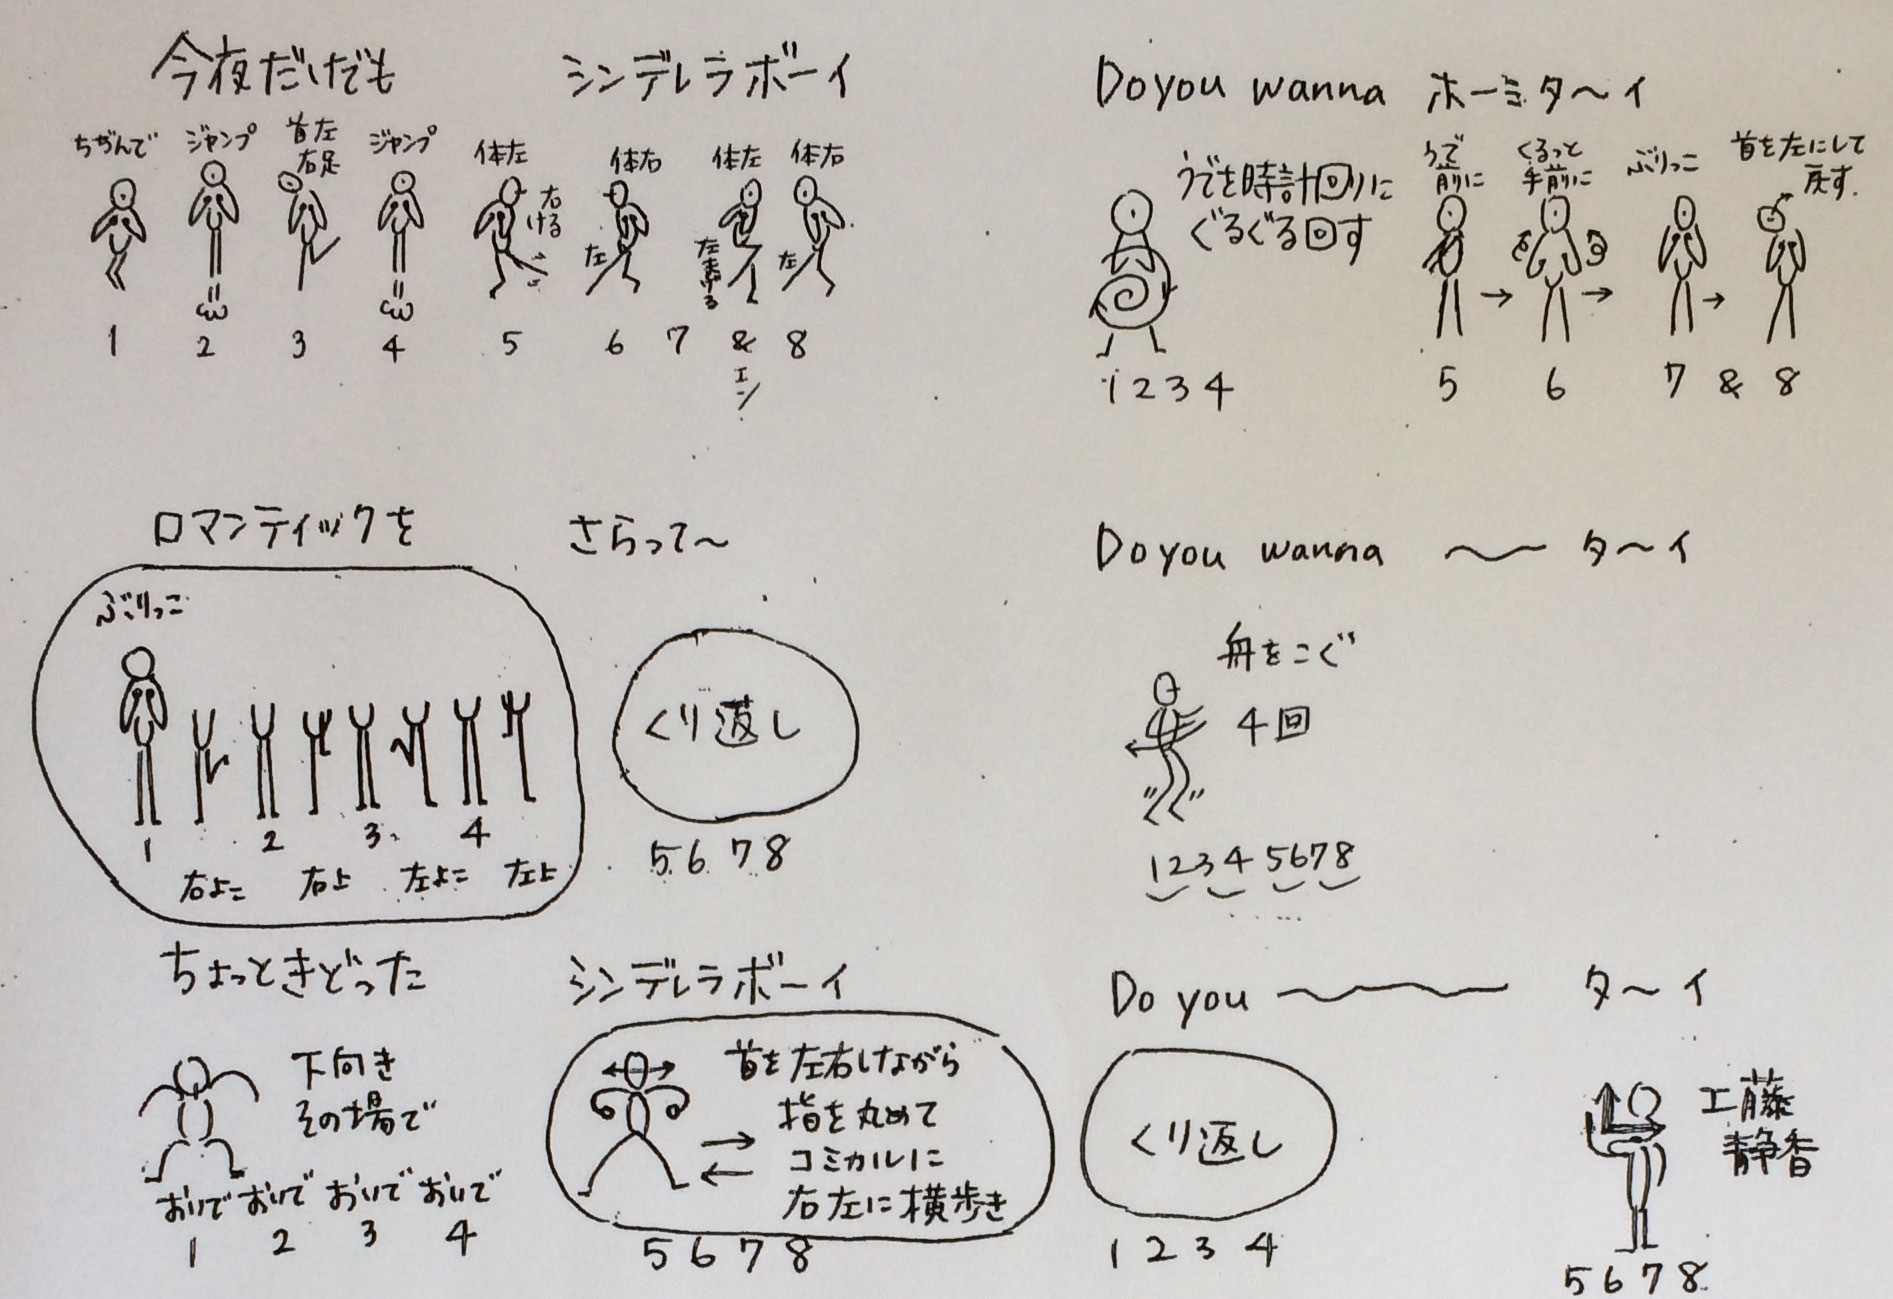 今夜だけでも シンデレラボーイ
ちぢんで ジャンプ 首左 右足 ジャンプ 体左 右ける 体右 左 体左 左ける 体右 左
1 2 3 4 5 6 7 & 8
エン
Do you wanna ホーミタ〜イ
うでを時計回りに
ぐるぐる回す
うで前に くるっと手前に ぶりっこ 首を左にして戻す.
1 2 3 4 5 6 7 & 8
ロマンティックを さらって〜
ぶりっこ
1 2 3 4
右よこ 右上 左よこ 左上
くり返し
5 6 7 8
Do you wanna 〜 タ〜イ
舟をこぐ
4回
1 2 3 4 5 6 7 8
ちょっときどった シンデレラボーイ
下向き
その場で
おいで おいで おいで おいで
1 2 3 4
首を左右しながら
指を丸めて
コミカルに
右左に横歩き
5 6 7 8
Do you 〜 タ〜イ
くり返し
1 2 3 4
工藤
静香
5 6 7 8